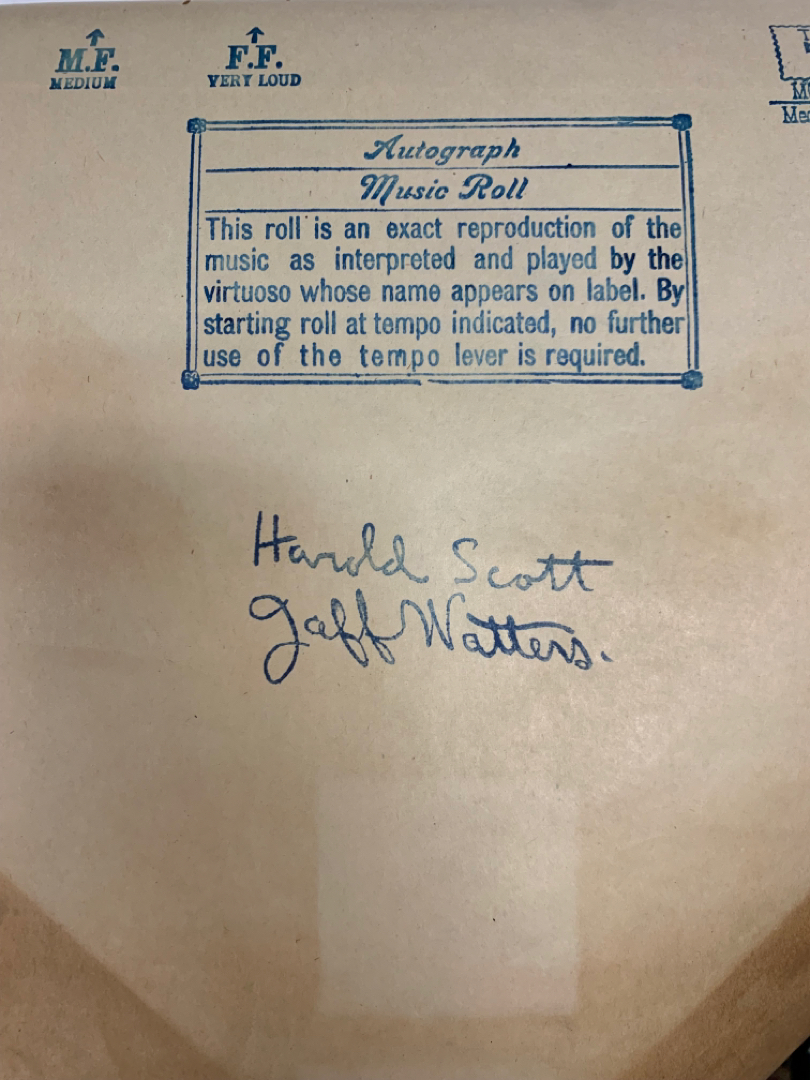 M.F.
MEDIUM
F.F.
VERY LOUD
Autograph
Music Roll
This roll is an exact reproduction of the
music as interpreted and played by the
virtuoso whose name appears on label. By
starting roll at tempo indicated, no further
use of the tempo lever is required.
Harold Scott
Jaff Watters.